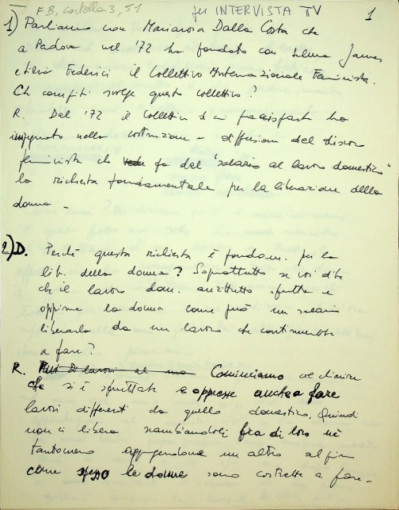 FB, cartella 3, 51 per INTERVISTA TV 1
1) Parliamo con Mariarosa Dalla Costa che
a Padova nel '72 ha fondato con Selma James
e Silvia Federici il Collettivo Internazionale Femminista.
Che compiti svolge questo collettivo?
R. Dal '72 il collettivo di cui faccio parte ha
impegnato nella costruzione e diffusione del discorso
femminista che fa del "salario al lavoro domestico"
la richiesta fondamentale per la liberazione della
donna.
2) D. Perché questa richiesta è fondam. per la
lib. della donna? Soprattutto se voi dite
che il lavoro dom. anzitutto sfrutta e
opprime la donna come può un salario
liberarla da un lavoro che continuerebbe
a fare?
R. Cominciamo col dire
che si è sfruttate e oppresse anche a fare
lavori differenti da quello domestico. Quindi
non ci libera scambiandoli fra di loro né
tantomeno aggiungendone un altro al primo
come spesso le donne sono costrette a fare.